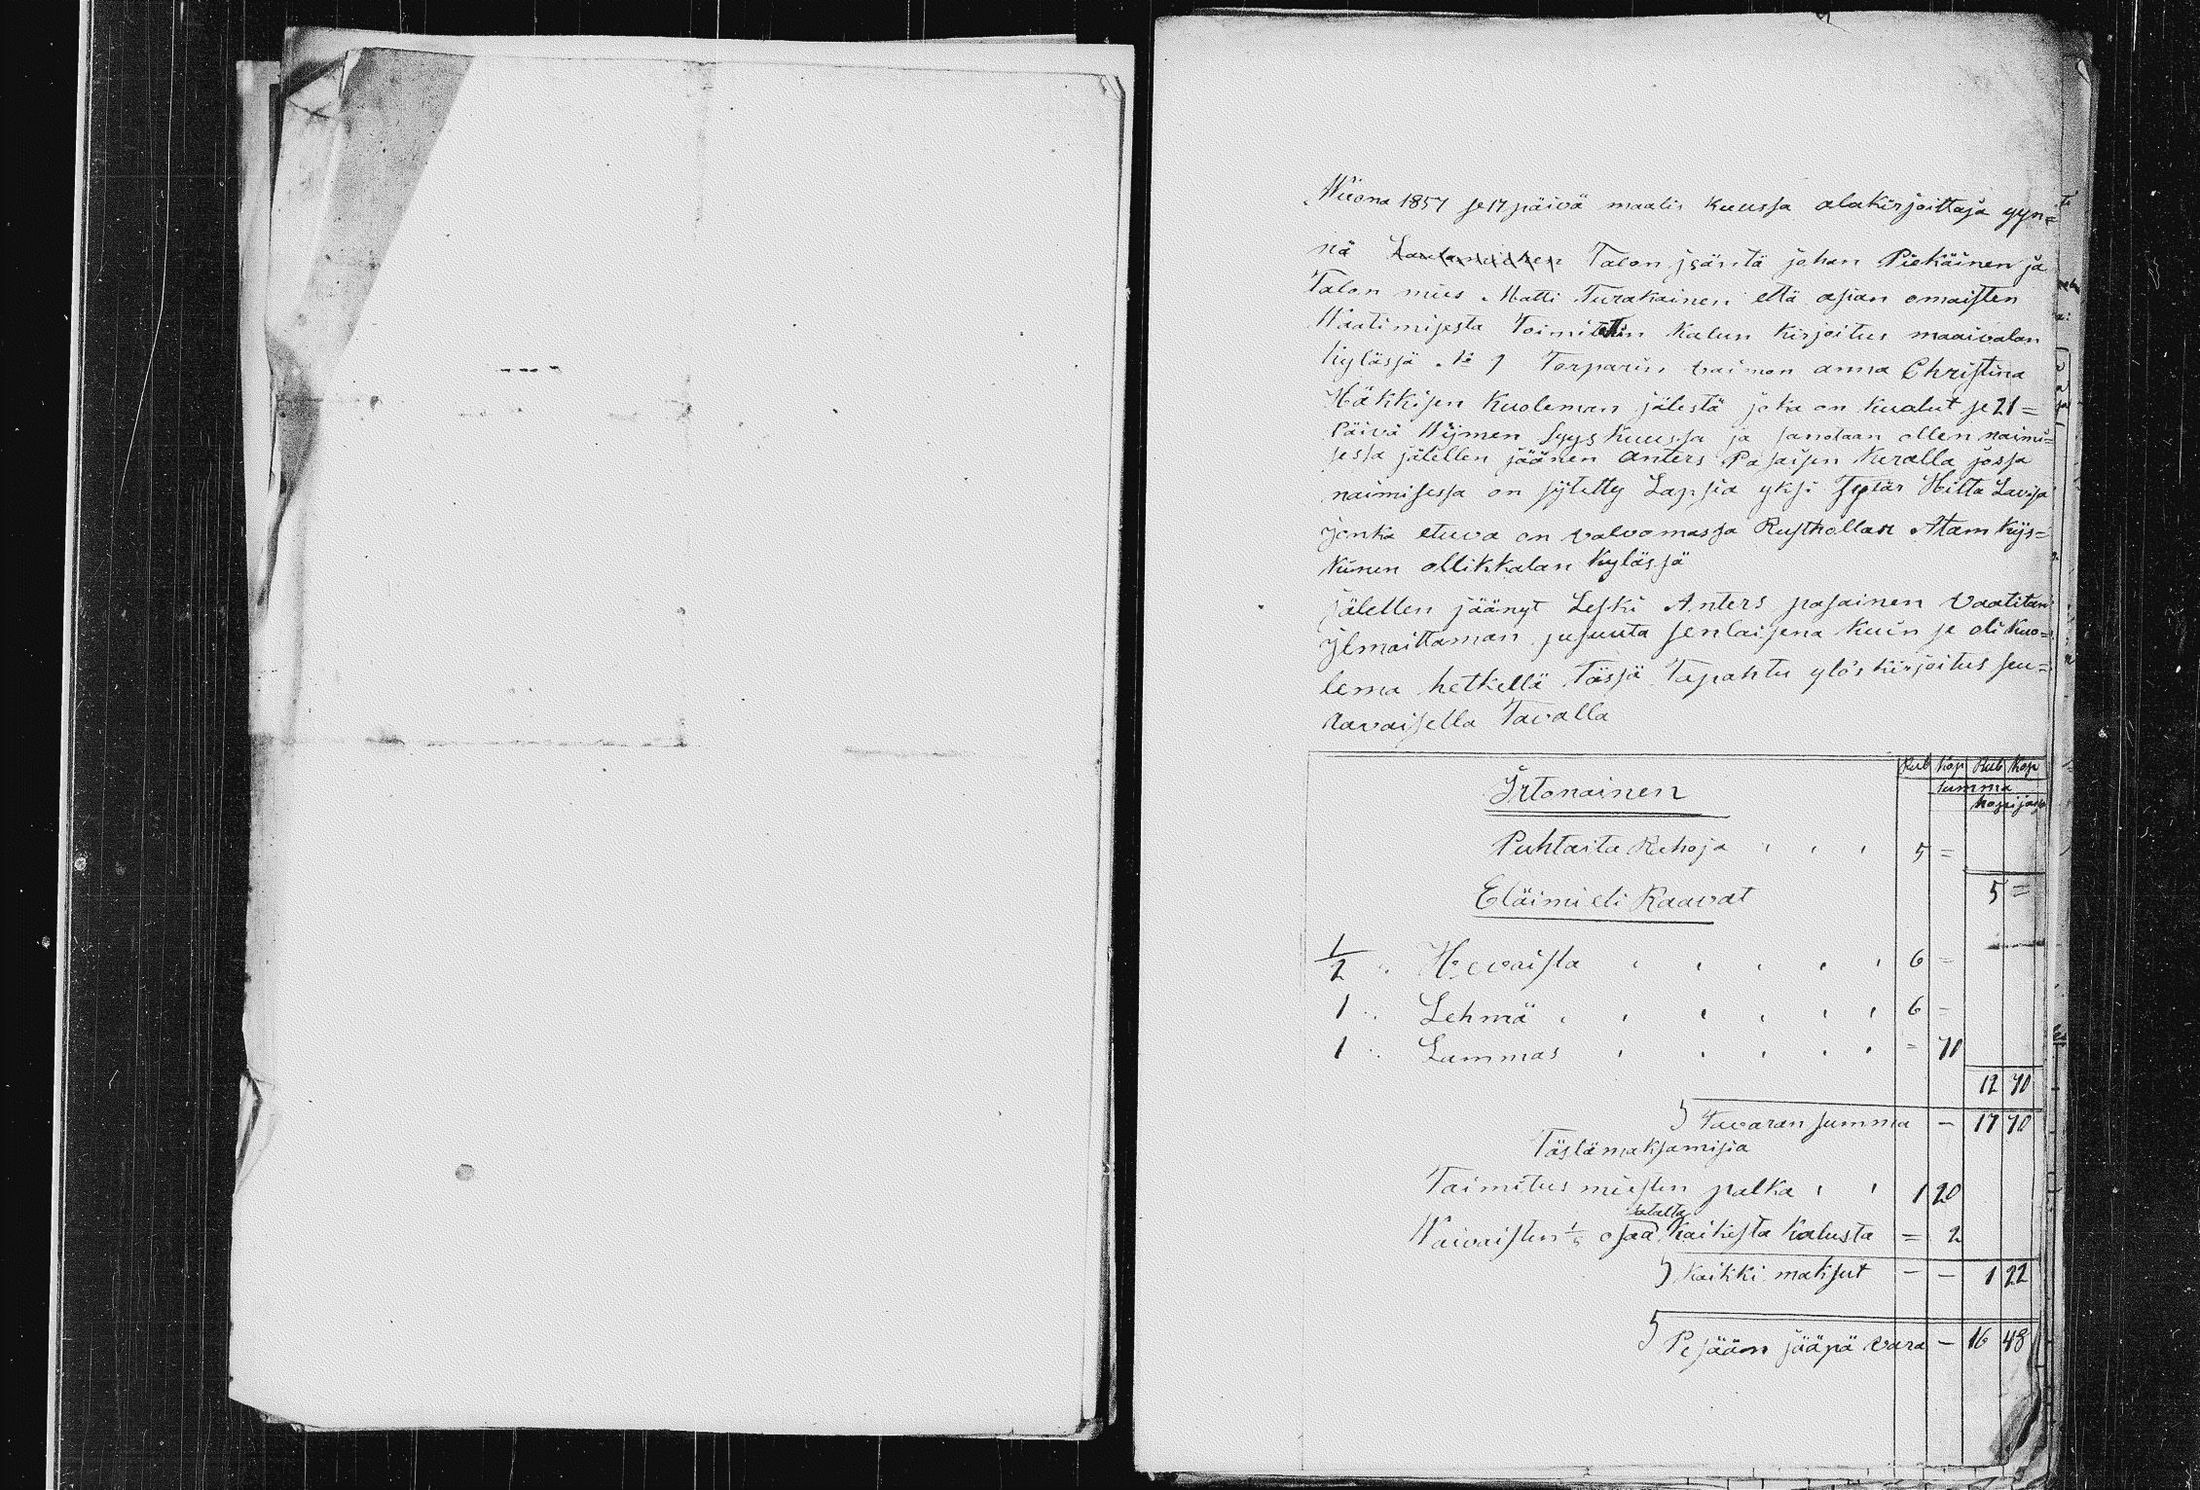 Wuona 1857 se 17 päivä maalis kuussa alakirjoittaja yyn=
nä Talon isäntä johan Piekäinen ja
Talon mies Matti Turakainen että asian omaisten
Waatimisesta Toimitettin Kalun Kirjoitus maaivalan
kylässä No 9 Torparin vaimon anna Christina
Häkkisen Kuoleman jälestä joka on kuolut se 21=
Päivä Wijmen syys Kuussa ja sanotaan ollen naimi=
sessa jälellen jäänen anters Pasaisen Keralla jossa
naimisessa on sijtetty Lapsia yksi Tytär Hilta Lavisa
jonka etuva on valvomassa Rusthollari Atam Kijs=
kinen ollikkalan Kylässä
jälellen jäänyt Leski Anters pasainen Vaatitan
ylmoittaman pesuuta senlaisena Kuin se oli Kuo=
lema hetkellä Tässä Tapahtu ylöskirjoitus seu=
aavaisella Tavalla
Rub Kop Rub Kop
summa
Irtonainen
Puhtaita Rahoja 5 =
5 =
Eläimi eli Raavat
1/2 Hevaista 6 =
1 Lehmä 6 =
1 Lammas = 70
12 70
Tavaran summa — 17 70
Tästä maksamisia
Toimitus miesten palka 1 20
satalta
Waivaisten osaa Kaikesta Kalusta = 2
Kaikki maksut — — 1 22
Pesään jääpä vara — 16 48